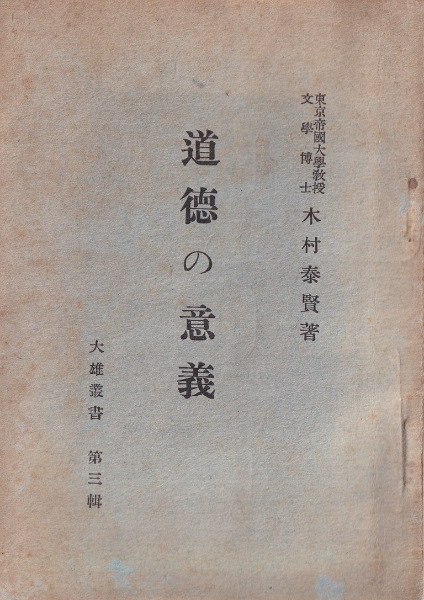 東京帝國大學教授
文學博士
木村泰賢著
道德の意義
大雄叢書 第三輯